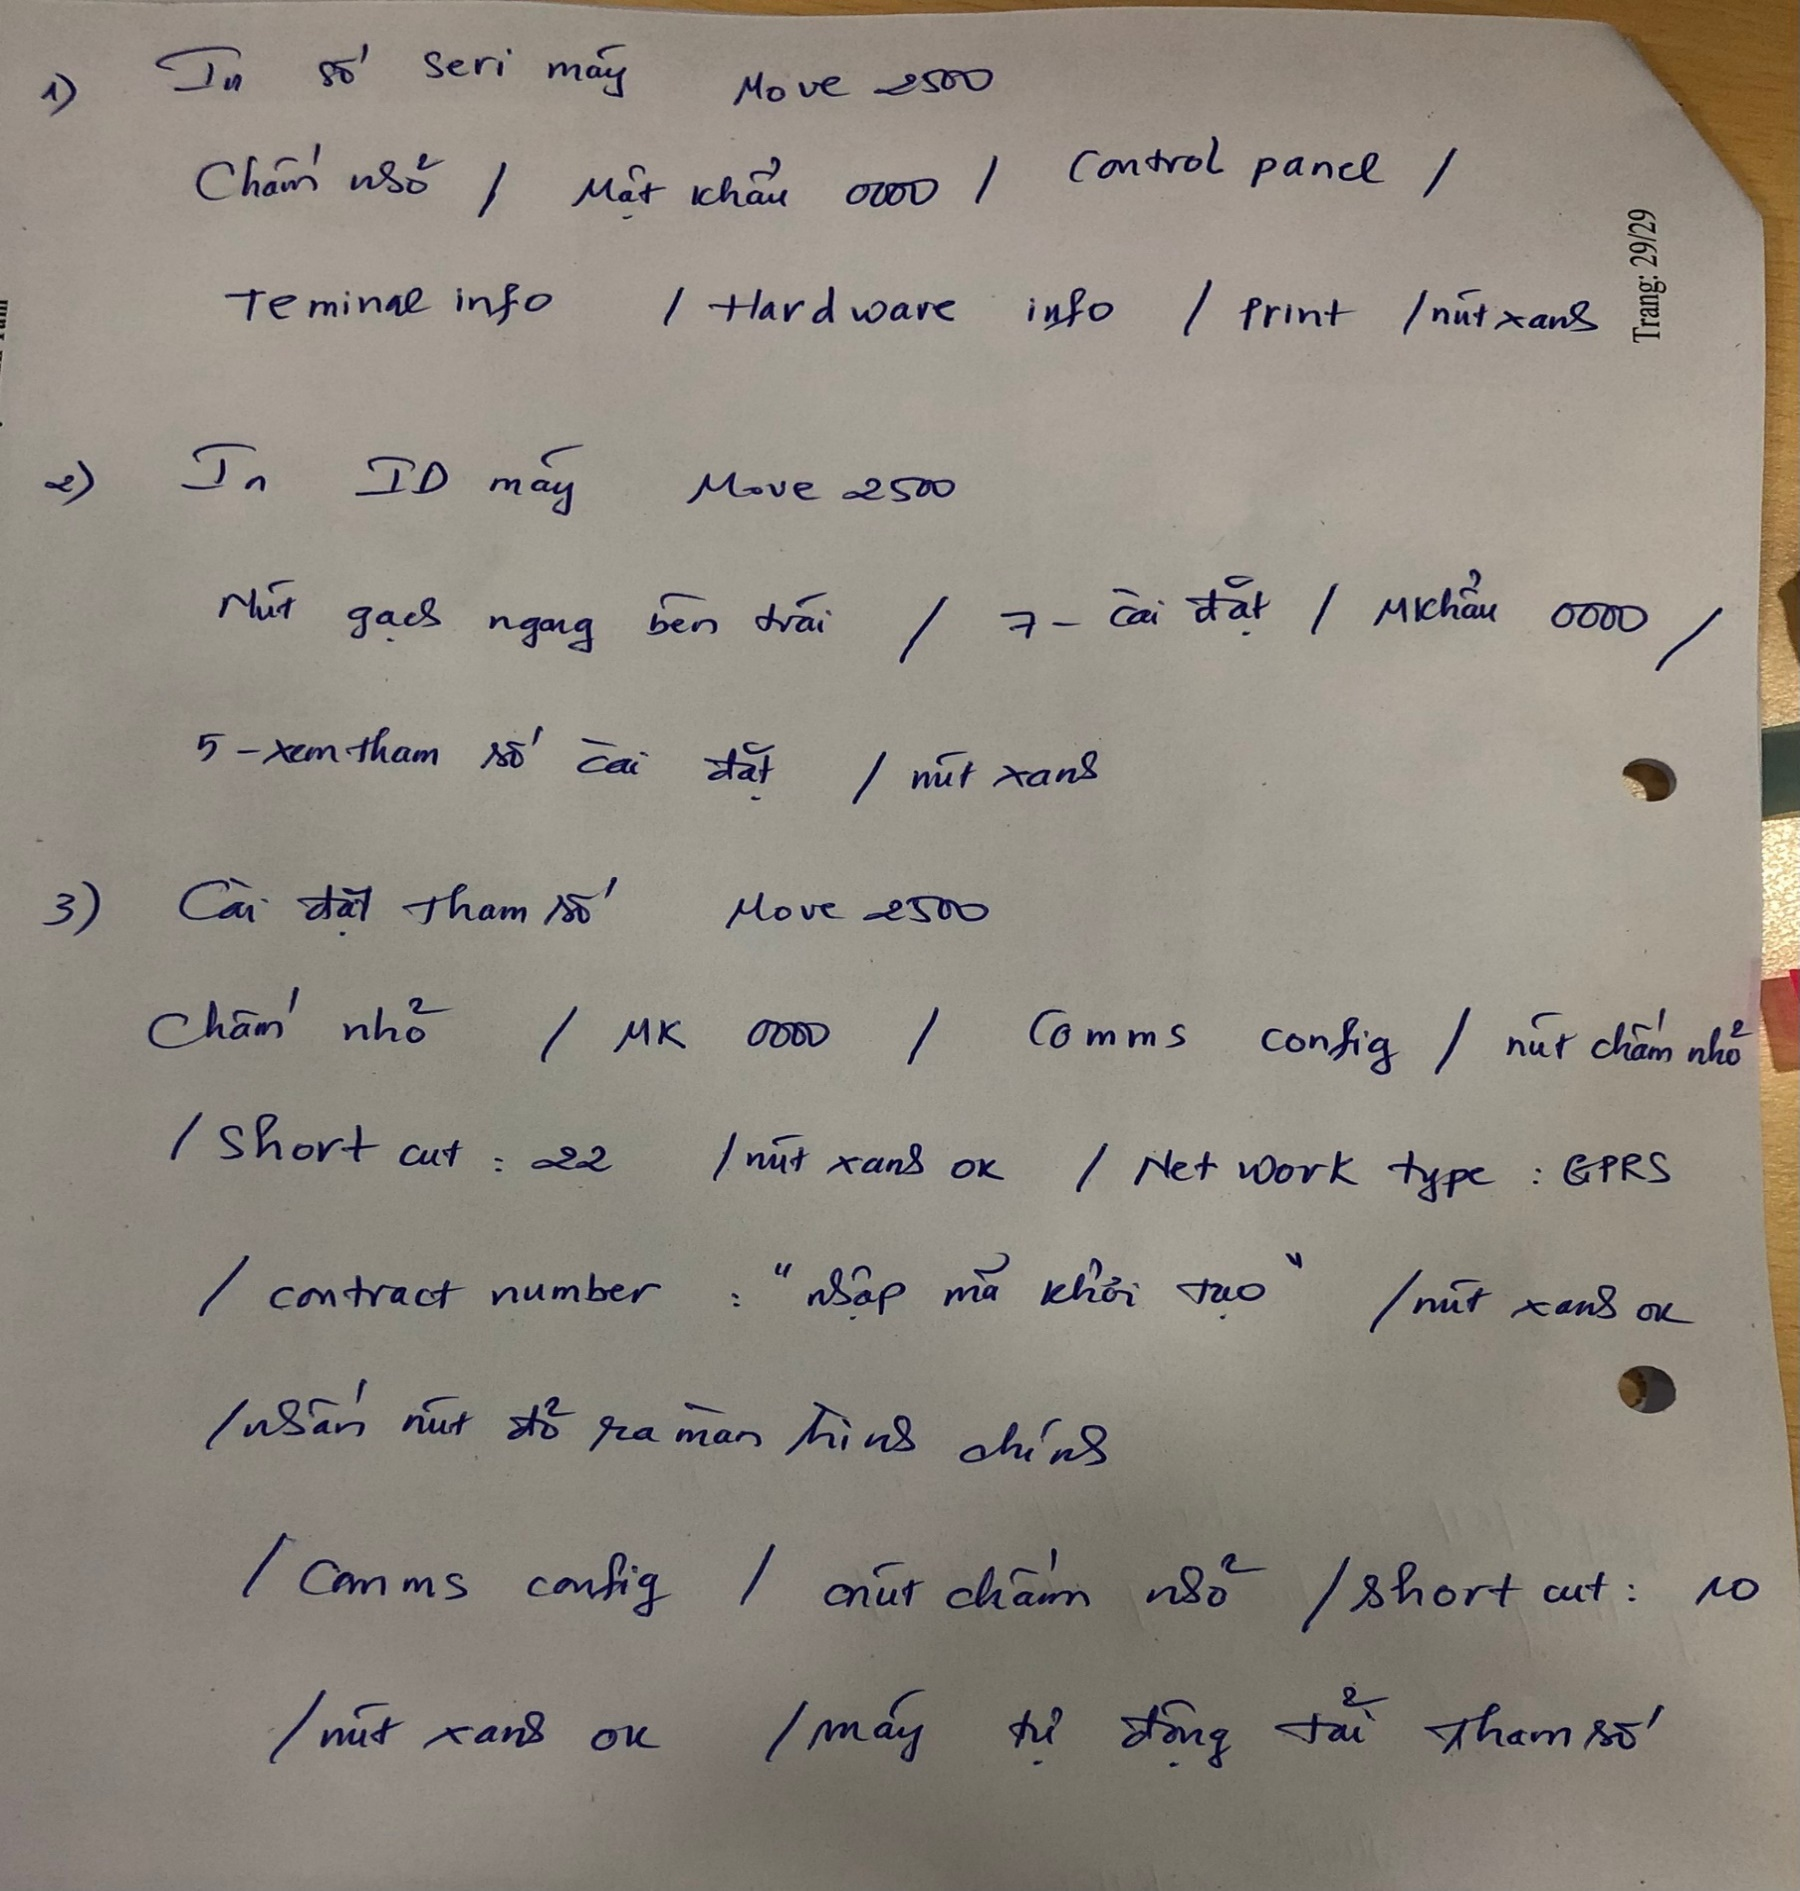 1) In số seri máy Move 2500
Chấm nhỏ / Mật khẩu 0000 / Control panel /
Teminal info / Hardware info / Print / nút xanh
Trang: 29/29
2) In ID máy Move 2500
Nút gạch ngang bên trái / 7 - Cài đặt / MKhẩu 0000 /
5 - xem tham số cài đặt / nút xanh
3) Cài đặt tham số Move 2500
Chấm nhỏ / MK 0000 / Comms config / nút chấm nhỏ
/ Short cut : 22 / nút xanh ok / Net work type : GPRS
/ contract number : "nhập mã khởi tạo" / nút xanh ok
/ nhấn nút đỏ ra màn hình chính
/ Comms config / nút chấm nhỏ / short cut : 10
/ nút xanh ok / máy tự động tải tham số